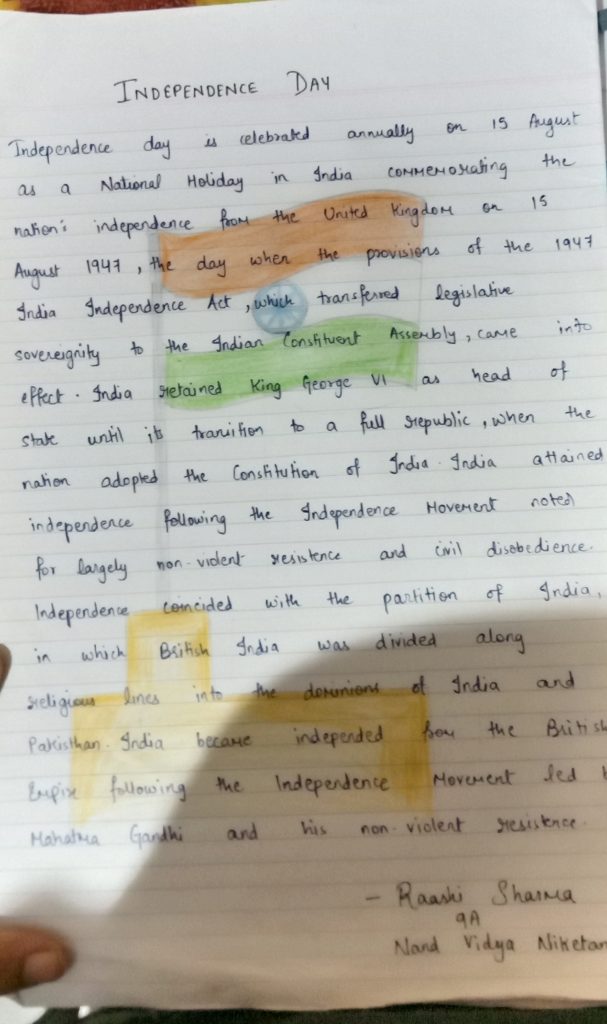 INDEPENDENCE DAY
Independence day is celebrated annually on 15 August
as a National Holiday in India commemorating the
nation's independence from the United Kingdom on 15
August 1947, the day when the provisions of the 1947
India Independence Act, which transferred legislative
sovereignity to the Indian Constituent Assembly, came into
effect. India retained King George VI as head of
state until its transition to a full republic, when the
nation adopted the Constitution of India. India attained
independence following the Independence Movement noted
for largely non-violent resistence and civil disobedience.
Independence coincided with the partition of India,
in which British India was divided along
religious lines into the dominions of India and
Pakisthan. India became independed from the British
Empire following the Independence Movement led
Mahatma Gandhi and his non-violent resistence.
- Raashi Sharma
9A
Nand Vidya Niketan